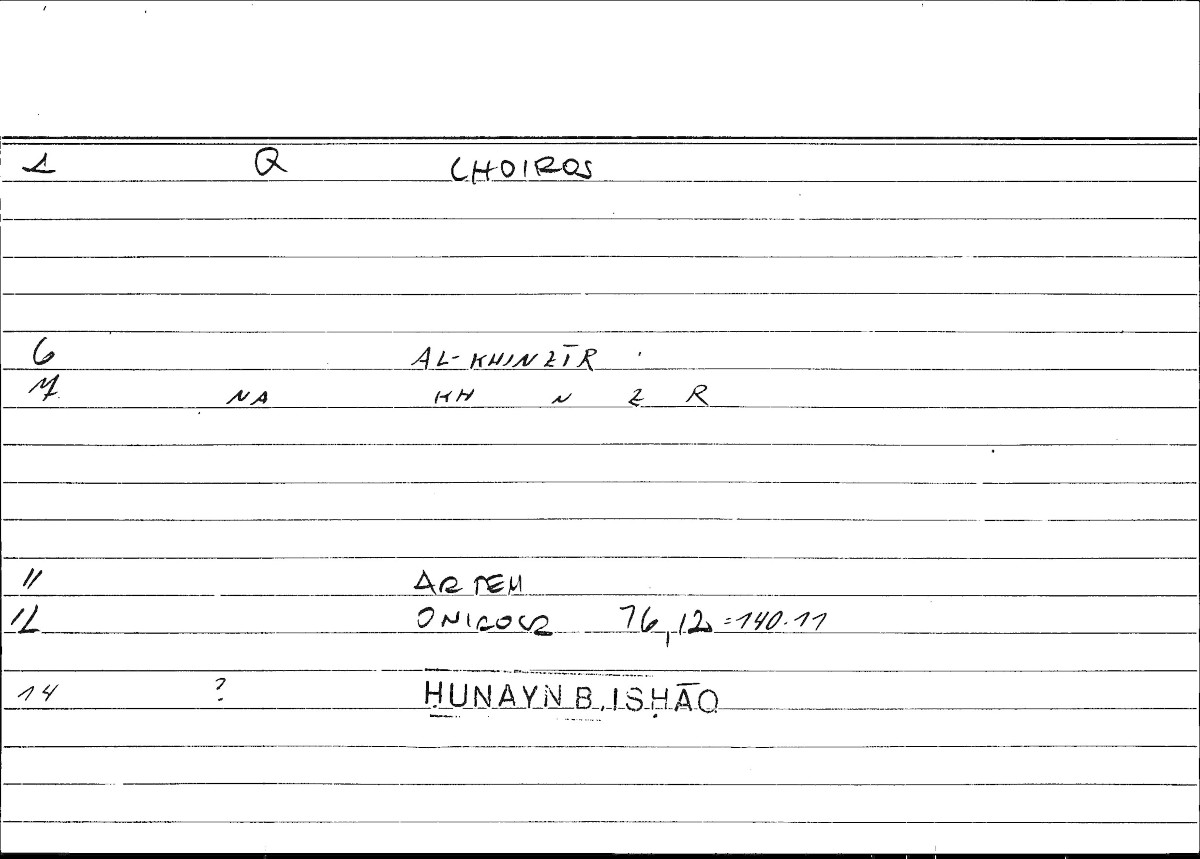 1 Q CHOIROS
6 AL-KHINZĪR
7 NA KH N Z R
11 ARTEM
12 ONIROCR 76,12 = 140.11
14 ? ḤUNAYN B. ISḤĀQ